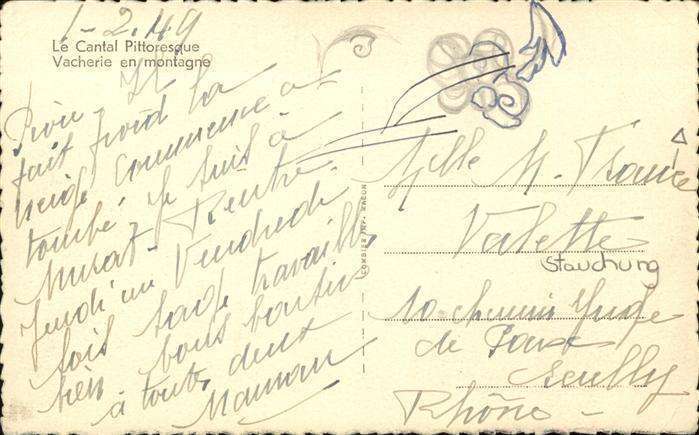 1-2.49
Le Cantal Pittoresque
Vacherie en montagne
Il
fait froid la
neige commence à
tomber. Je suis à
Murat - Rentre
Jeudi ou Vendredi
Sois sage travaille
bien. bons
à toute deux
Maman
COMBIER IMP. MACON
Mlle M. France
Valette
Stauchung
10 chemin
de
Ecully
Rhône -